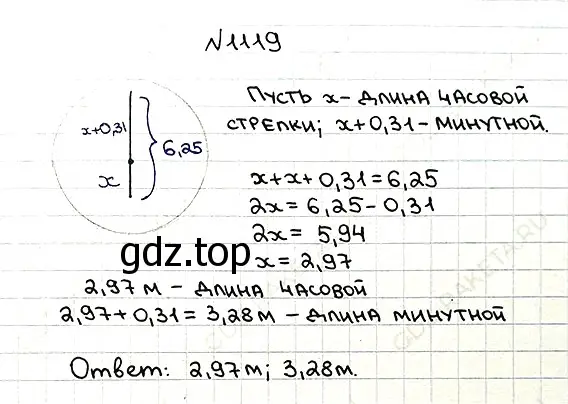 №1119
Пусть x - длина часовой
стрелки; x+0,31 - минутной.
x+0,31
6,25
x
x+x+0,31=6,25
2x=6,25-0,31
2x= 5,94
x=2,97
gdz.top
2,97м - длина часовой
2,97+0,31=3,28м - длина минутной
Ответ: 2,97м; 3,28м.